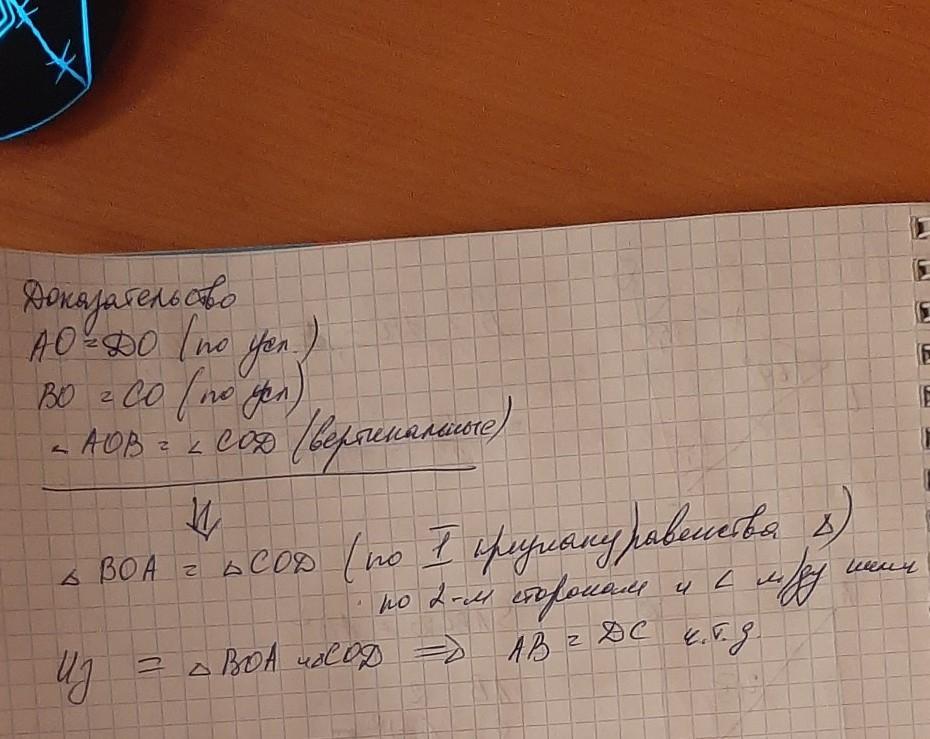 Доказательство
AO = DO (по усл.)
BO = CO (по усл)
∠ AOB = ∠ COD (вертикальные)
⇓
△ BOA = △ COD (по I признаку равенства △)
по 2-м сторонам и ∠ м/ду ними
Из = △ BOA и △ COD ⇒ AB = DC ч.т.д.